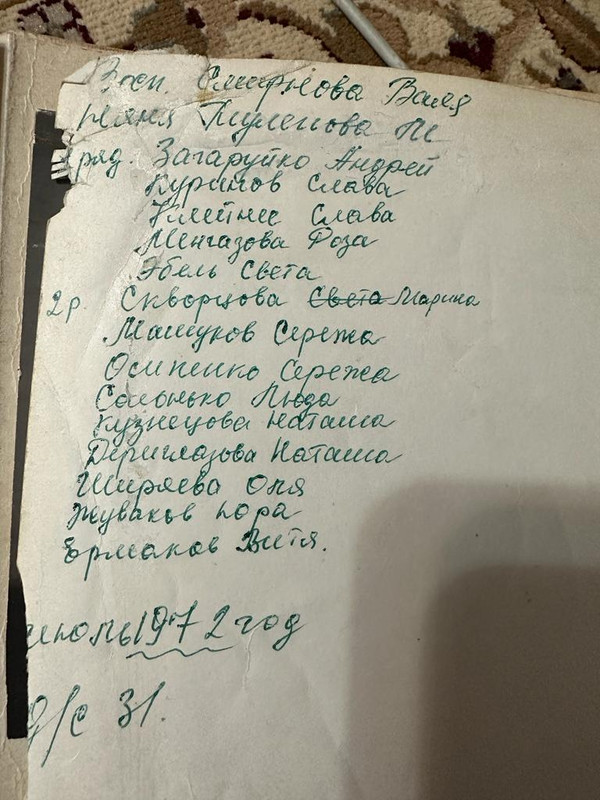 Восп. Смирнова Валя
Няня Тулепова М
1 ряд. Загаруйко Андрей
Куримов Слава
Клейнес Слава
Менгазова Роза
Эбель Света
2 р. Скворцова Света Марина
Машуков Сережа
Осипенко Сережа
Солонько Люда
Кузнецова Наташа
Дериглазова Наташа
Ширяева Оля
Жуваков Юра
Ермаков Витя.
июль 1972 год
д/с 31.